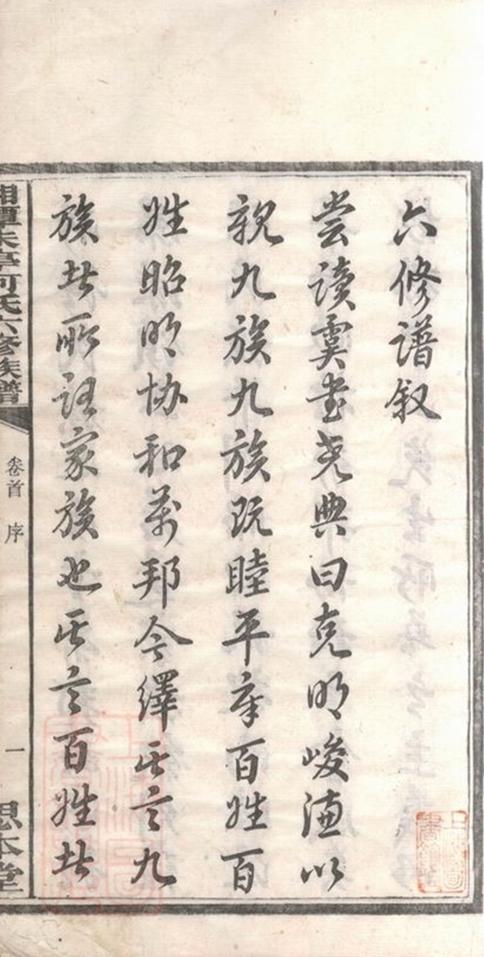 六修譜叙
尝读虞书尧典曰克明峻德以
親九族九族既睦平章百姓百
姓昭明协和萬邦今繹其言九
族者所谓家族也其言百姓者
湘潭朱亭何氏六修族譜
卷首 序
一
思本堂